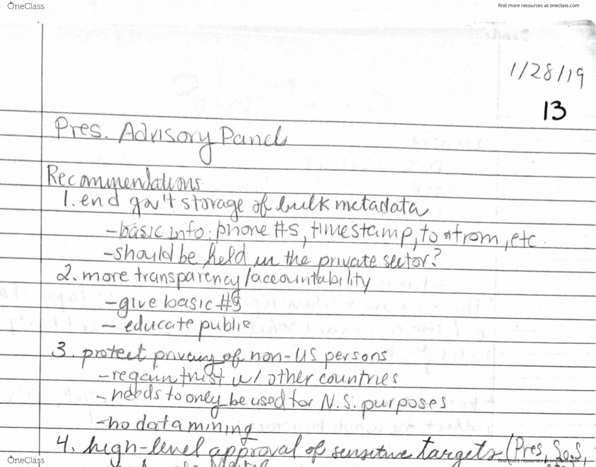 OneClass
find more resources at oneclass.com
1/28/19
13
Pres. Advisory Panel
Recommendations
1. end gov't storage of bulk metadata
-basic info: phone #s, timestamp, to + from, etc.
-should be held in the private sector?
2. more transparency/accountability
-give basic #s
- educate public
3. protect privacy of non-US persons
-regain trust w/ other countries
-needs to only be used for N.S. purposes
-no data mining
4. high-level approval of sensitive targets (Pres, SoS,
OneClass